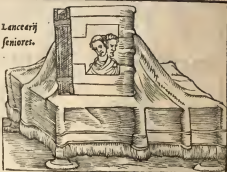 Lancearij
ſeniores.